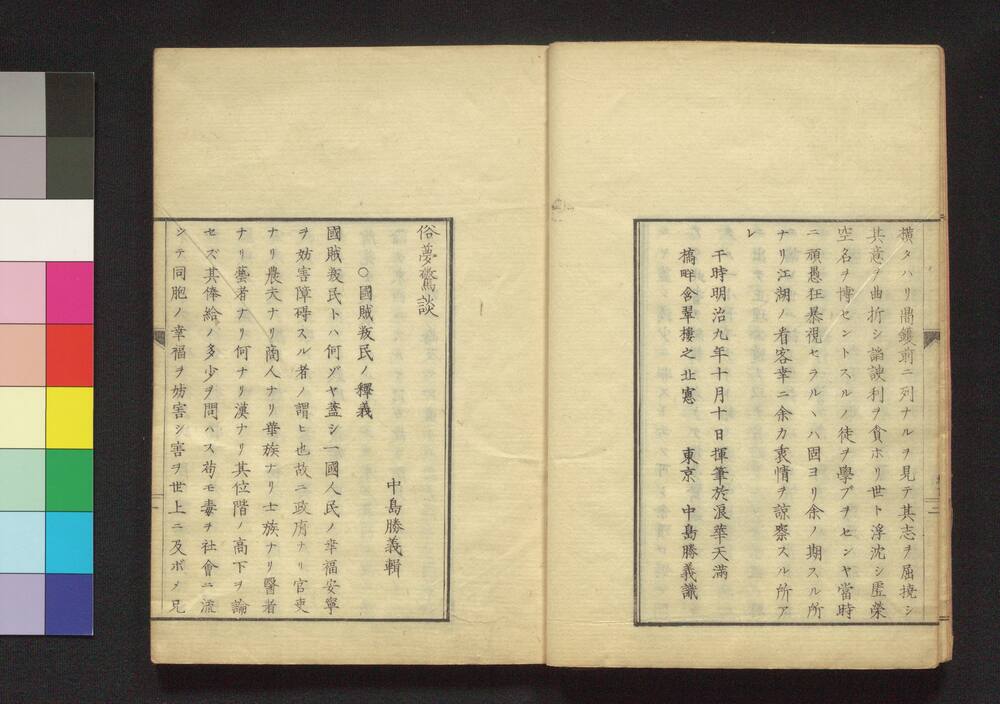 横タハリ鼎鑊前ニ列ナルヲ見テ其志ヲ屈撓シ
其意ヲ曲折シ謟諛利ヲ貪ホリ世ト浮沈シ虚榮
空名ヲ博セントスルノ徒ヲ學ブヲセンヤ當時
ニ頑愚狂暴視セラルヽハ固ヨリ余ノ期スル所
ナリ江湖ノ看客幸ニ余カ衷情ヲ諒察スル所ア
レ
干時明治九年十月十日揮筆於浪華天滿
橋畔含翠樓之北窻 東京 中島勝義識
俗夢驚談
中島勝義輯
○國賊叛民ノ釋義
國賊叛民トハ何ゾヤ蓋シ一國人民ノ幸福安寧
ヲ妨害障碍スル者ノ謂ヒ也故ニ政府ナリ官吏
ナリ農夫ナリ商人ナリ華族ナリ士族ナリ醫者
ナリ藝者ナリ何ナリ漢ナリ其位階ノ高下ヲ論
セズ其俸給ノ多少ヲ問ハス苟モ毒ヲ社會ニ流
シテ同胞ノ幸福ヲ妨害シ害ヲ世上ニ及ボメ兄